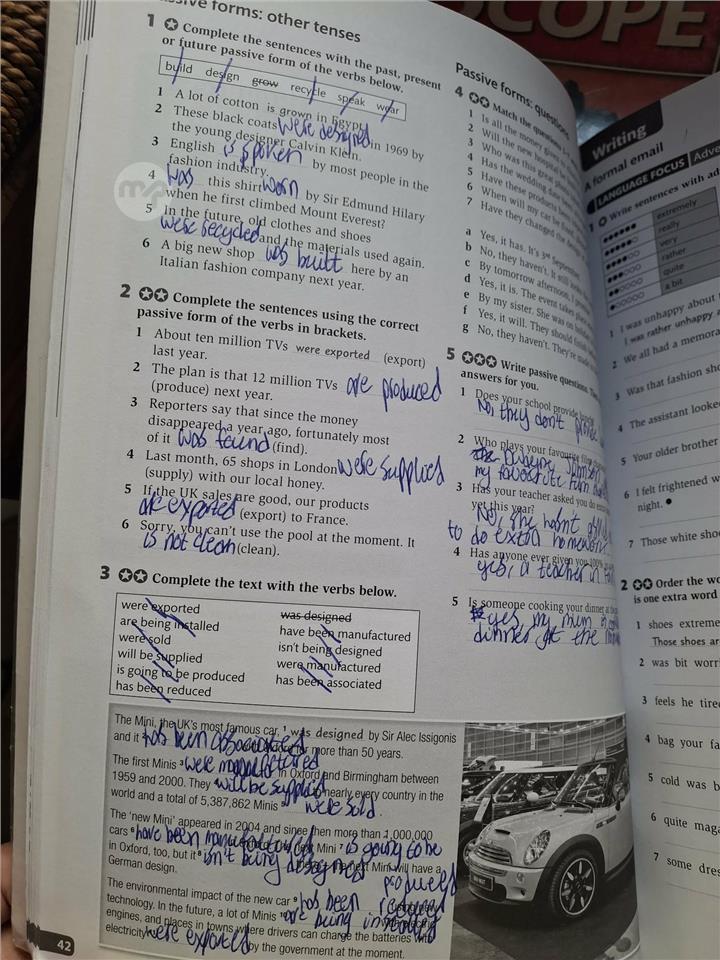 SCOPE
ssive forms: other tenses
1 Complete the sentences with the past, present
or future passive form of the verbs below.
build design grow recycle speak wear
1 A lot of cotton is grown in Egypt.
2 These black coats were designed in 1969 by
the young designer Calvin Klein.
3 English is spoken by most people in the
fashion industry.
4 was this shirt worn by Sir Edmund Hilary
when he first climbed Mount Everest?
5 In the future, old clothes and shoes
were recycled and the materials used again.
6 A big new shop was built here by an
Italian fashion company next year.
2 Complete the sentences using the correct
passive form of the verbs in brackets.
1 About ten million TVs were exported (export)
last year.
2 The plan is that 12 million TVs are produced
(produce) next year.
3 Reporters say that since the money
disappeared a year ago, fortunately most
of it was found (find).
4 Last month, 65 shops in London were supplied
(supply) with our local honey.
5 If the UK sales are good, our products
are exported (export) to France.
6 Sorry, you can't use the pool at the moment. It
is not clean (clean).
3 Complete the text with the verbs below.
were exported
are being installed
were sold
will be supplied
is going to be produced
has been reduced
was designed
have been manufactured
isn't being designed
were manufactured
has been associated
The Mini, the UK's most famous car, 1 was designed by Sir Alec Issigonis
and it has been associated for more than 50 years.
The first Minis 3 were manufactured in Oxford and Birmingham between
1959 and 2000. They will be supplied to nearly every country in the
world and a total of 5,387,862 Minis were sold.
The 'new Mini' appeared in 2004 and since then more than 1,000,000
cars have been manufactured Mini is going to be
produced
in Oxford, too, but it isn't being designed next Mini will have a
German design.
The environmental impact of the new car has been reduced
technology. In the future, a lot of Minis are being installed
engines, and places in towns where drivers can charge the batteries with
electricity were exported by the government at the moment.
42
Passive forms: questions
4 Match the questions
1 Is all the money
2 Will the new hospital
3 Who was this
4 Has the wedding
5 Have these products
6 When will my car be
7 Have they changed the
a Yes, it has. It's 3rd September.
b No, they haven't. It still
c By tomorrow afternoon, I
d Yes, it is. The event takes
e By my sister. She was on
f Yes, it will. They should finish
g No, they haven't. They're made
5 Write passive questions.
answers for you.
1 Does your school provide
No, they don't provide
2 Who plays your favourite film
my favourite
3 Has your teacher asked you do extra
yet this year?
No, she hasn't
to do extra homework
4 Has anyone ever given you
yes, a teacher in
5 Is someone cooking your dinner at the
yes, my mum is
dinner at the
Writing
A formal email
LANGUAGE FOCUS Adve
1 Write sentences with ad
extremely
really
very
rather
quite
a bit
1 I was unhappy about
I was rather unhappy a
2 We all had a memora
3 Was that fashion sho
4 The assistant looked
5 Your older brother
6 I felt frightened w
night.
7 Those white shoe
2 Order the wo
is one extra word
1 shoes extreme
Those shoes ar
2 was bit worri
3 feels he tired
4 bag your fa
5 cold was b
6 quite maga
7 some dres